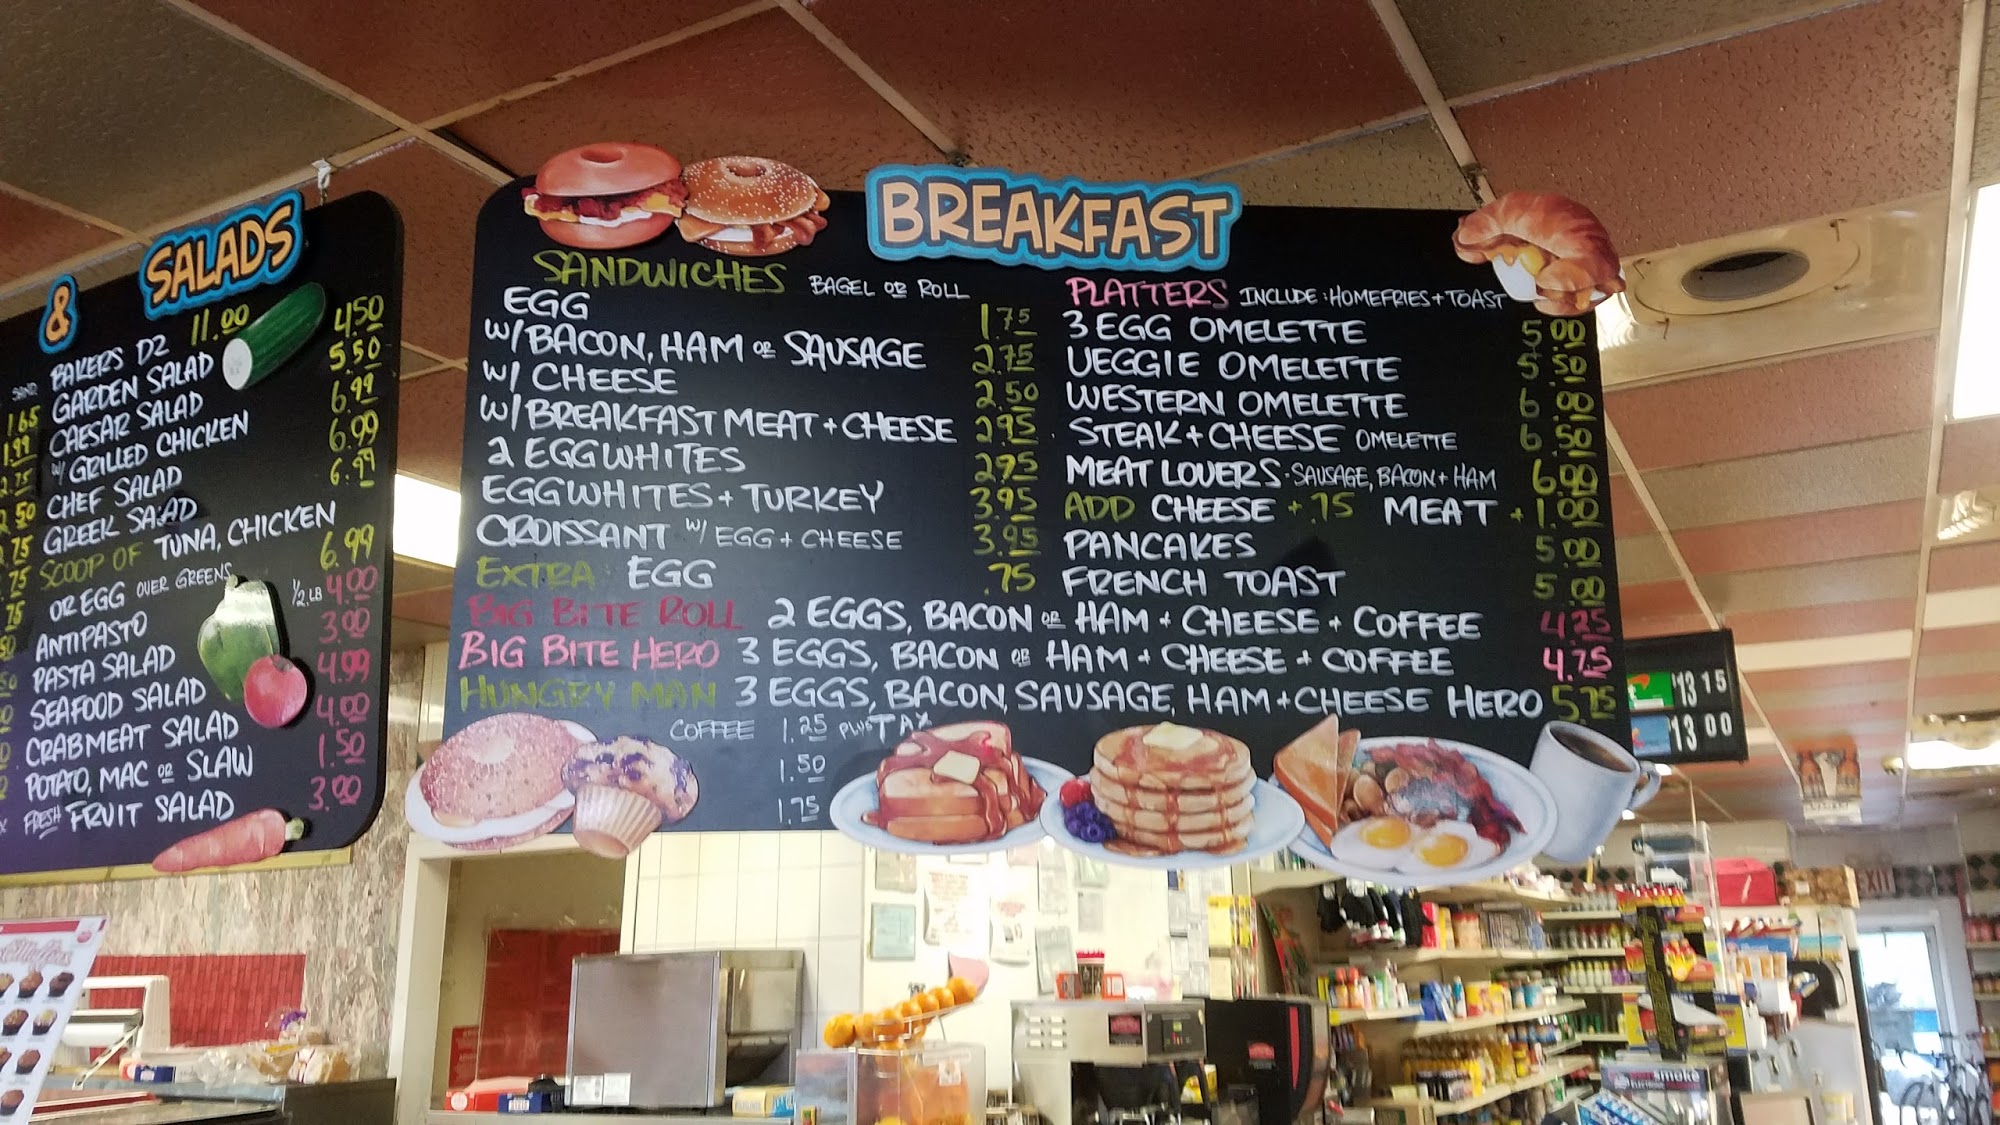 & SALADS
SAND.
BAKERS DZ 11.00
GARDEN SALAD 4.50
CAESAR SALAD 5.50
W/ GRILLED CHICKEN 6.99
CHEF SALAD 6.99
GREEK SALAD 6.99
SCOOP OF TUNA, CHICKEN
OR EGG OVER GREENS 6.99
ANTIPASTO 1/2 LB 4.00
PASTA SALAD 3.00
SEAFOOD SALAD 4.99
CRABMEAT SALAD 4.00
POTATO, MAC OR SLAW 1.50
FRESH FRUIT SALAD 3.00
1.65
1.99
2.75
BREAKFAST
SANDWICHES BAGEL OR ROLL
EGG 1.75
W/ BACON, HAM OR SAUSAGE 2.75
W/ CHEESE 2.50
W/ BREAKFAST MEAT + CHEESE 2.95
2 EGGWHITES 2.95
EGGWHITES + TURKEY 3.95
CROISSANT W/ EGG + CHEESE 3.95
EXTRA EGG .75
PLATTERS INCLUDE: HOMEFRIES + TOAST
3 EGG OMELETTE 5.00
VEGGIE OMELETTE 5.50
WESTERN OMELETTE 6.00
STEAK + CHEESE OMELETTE 6.50
MEAT LOVERS - SAUSAGE, BACON + HAM 6.99
ADD CHEESE + .75 MEAT + 1.00
PANCAKES 5.00
FRENCH TOAST 5.00
BIG BITE ROLL 2 EGGS, BACON OR HAM + CHEESE + COFFEE 4.25
BIG BITE HERO 3 EGGS, BACON OR HAM + CHEESE + COFFEE 4.75
HUNGRY MAN 3 EGGS, BACON, SAUSAGE, HAM + CHEESE HERO 5.75
COFFEE 1.25 PLUS TAX
1.50
1.75
13 15
13 00
EXIT
smoke